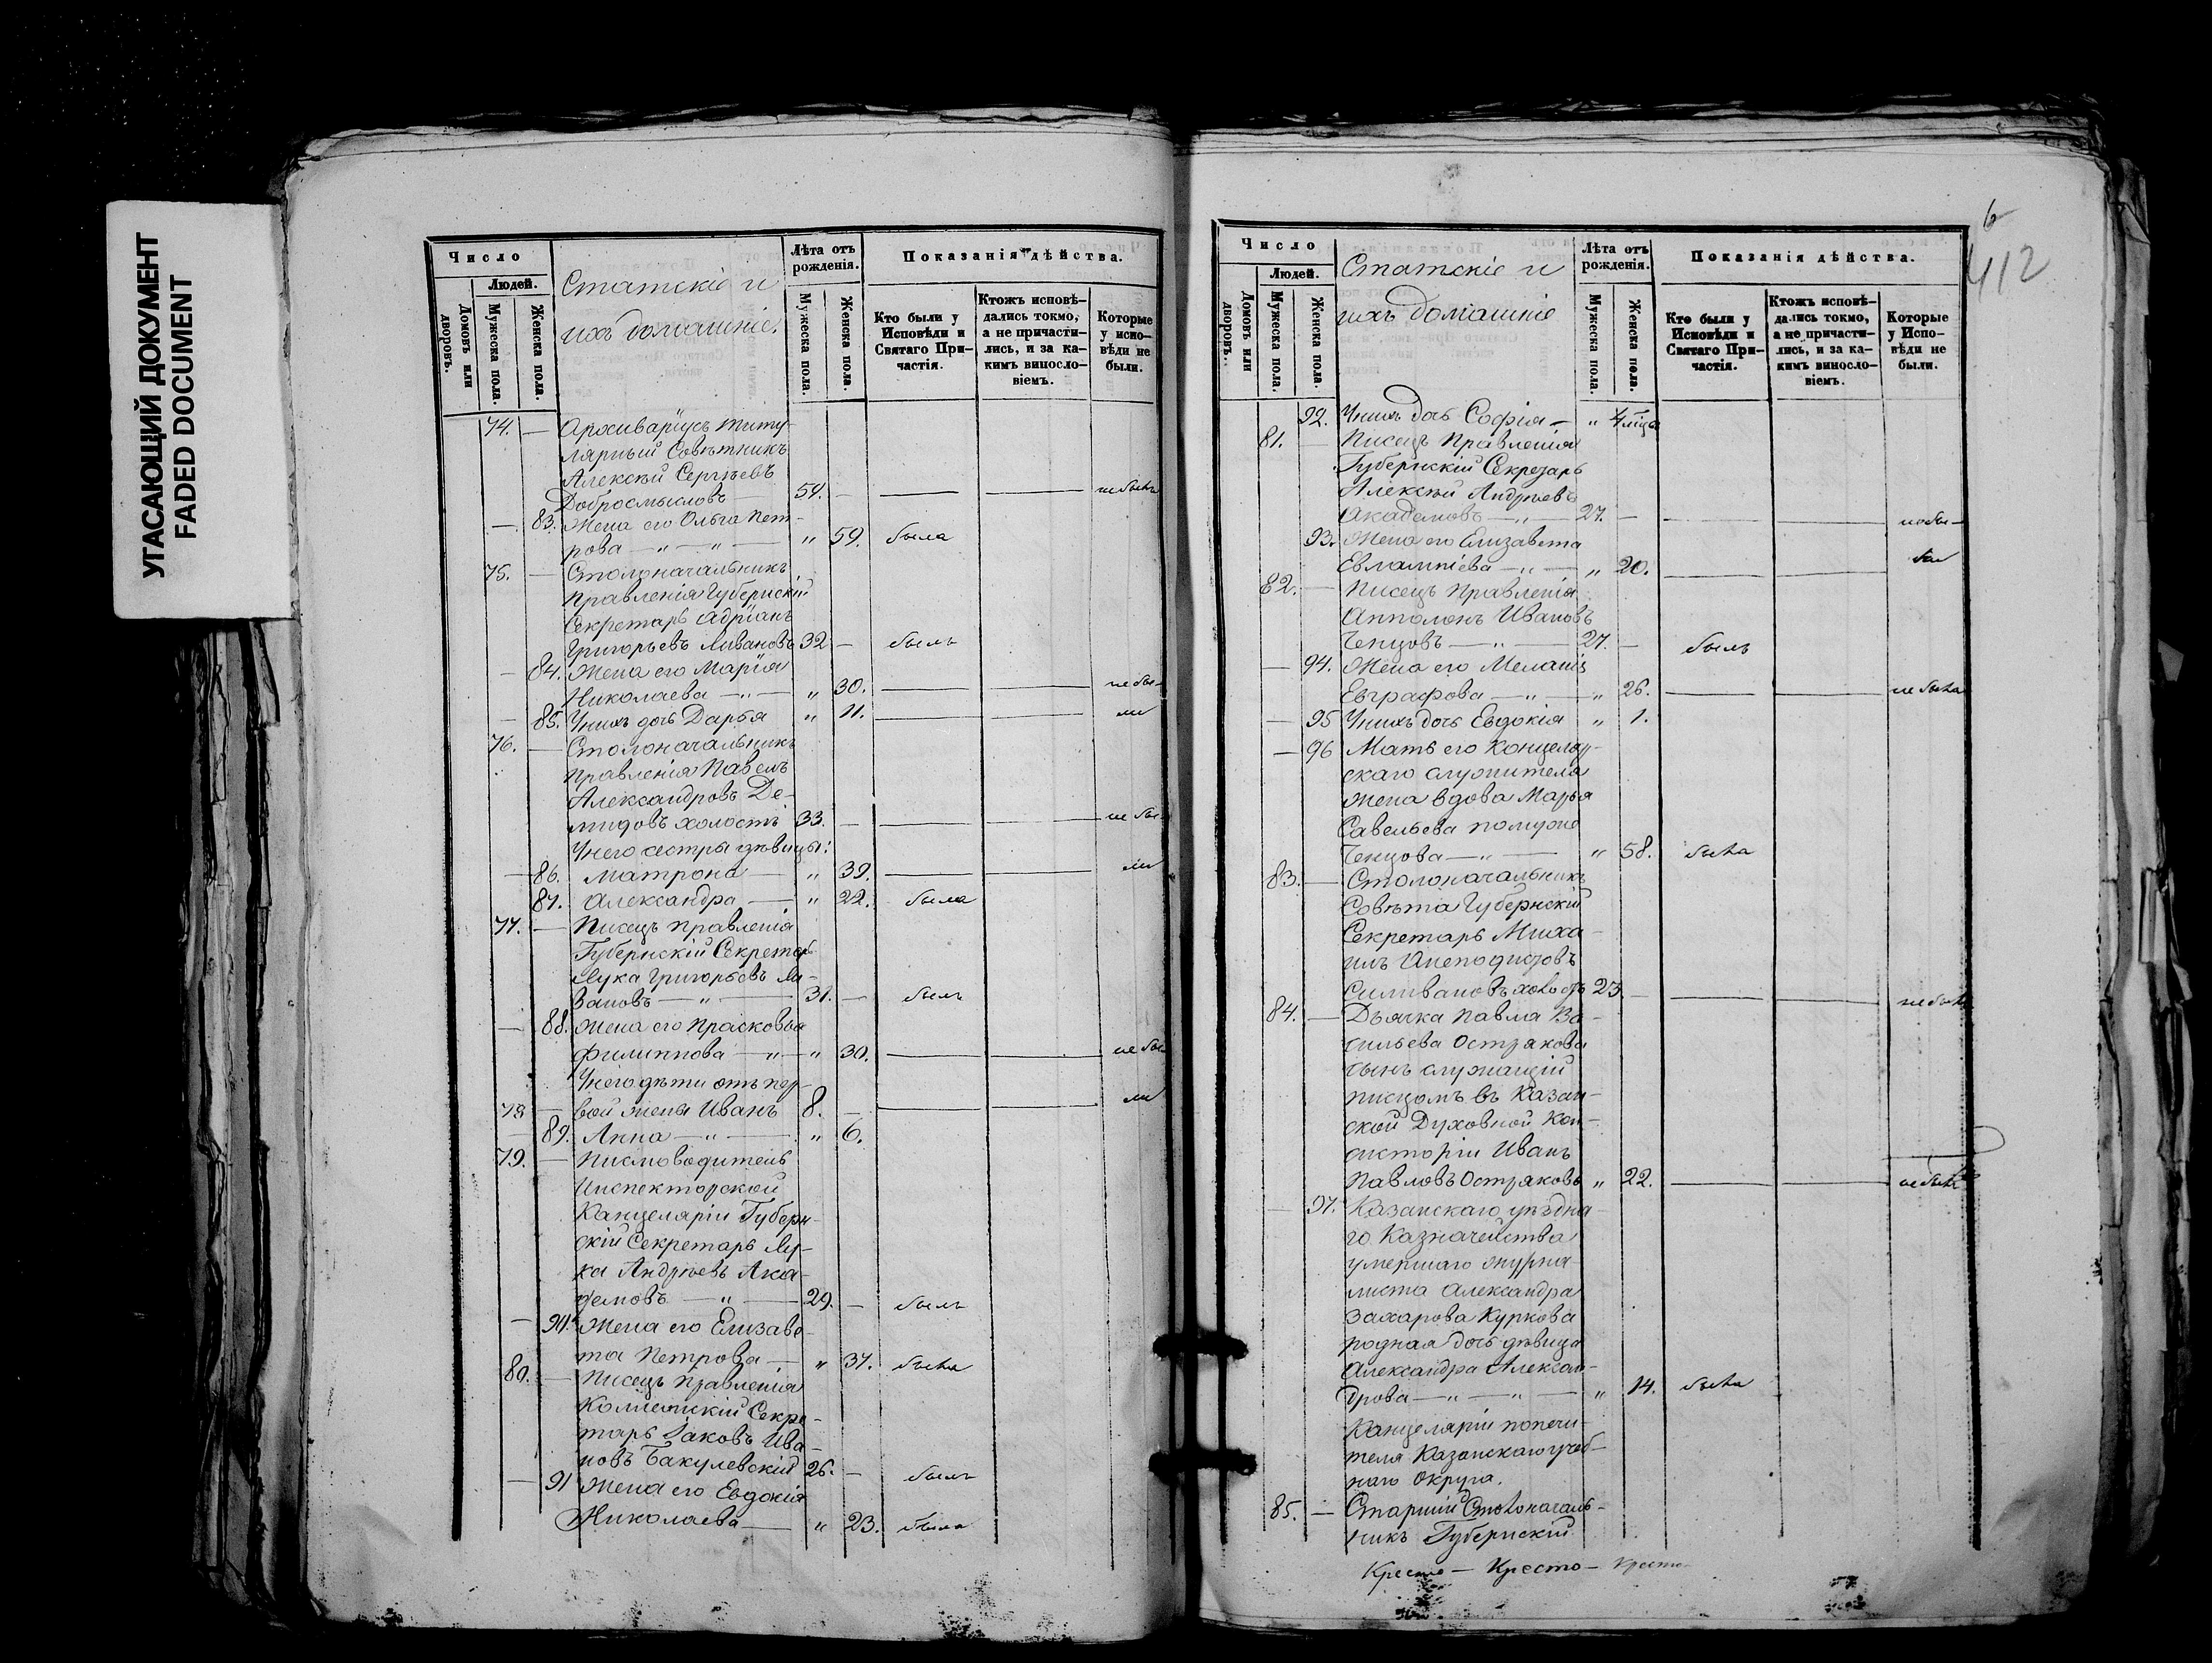 УГАСАЮЩИЙ ДОКУМЕНТ
FADED DOCUMENT
Число
Людей.
Домовъ или дворовъ.
Мужеска пола.
Женска пола.
Статскіе и
ихъ домашніе.
Лѣта отъ рожденія.
Мужеска пола.
Женска пола.
Показанія дѣйства.
Кто были у Исповѣди и Святаго Причастія.
Ктожъ исповѣ-
дались токмо,
а не причасти-
лись, и за ка-
кимъ винослo-
віемъ.
Которые
у испо-
вѣди не
были.
74. — Архиваріусъ титу-
лярный Совѣтникъ
Алексѣй Сергѣевъ
Добросмысловъ — 54. — не былъ
— 83. Жена его Ольга Пет-
рова — „ — „ — „ 59. была
75. — Столоначальникъ
Правленія Губернскій
Секретарь Адріанъ
Григорьевъ Ливановъ 32 — былъ
— 84. Жена его Марія
Николаева — „ — „ 30. — не бы-
— 85. У нихъ дочь Дарья „ 11. — ли
76. — Столоначальникъ
Правленія Павелъ
Александровъ Де-
мидовъ холостъ 33. — не бы-
У него сестры дѣвицы:
— 86. Матрона — „ 39. — ли
87. Александра — „ 22. была
77. — Писецъ Правленія
Губернскій Секретарь
Лука Григорьевъ Ли-
вановъ — „ — 31. — былъ
— 88. Жена его Прасковья
Филиппова — „ — „ 30. — не бы-
У него дѣти отъ пер-
78 — вой жены Иванъ 8. — ли
— 89. Анна — „ — „ 6.
79. — Письмоводитель
Инспекторской
Канцеляріи Губерн-
скій Секретарь Лу-
ка Андреевъ Ака-
демовъ — „ — 29. — былъ
— 90. Жена его Елизаве-
та Петрова — „ 37. была
80. — Писецъ Правленія
Коллежскій Секре-
тарь Іаковъ Ива-
новъ Бакулевскій 26. — былъ
— 91 Жена его Евдокія
Николаева — „ 23. была
6
412
Число
Людей.
Домовъ или дворовъ.
Мужеска пола.
Женска пола.
Статскіе и
ихъ домашніе
Лѣта отъ рожденія.
Мужеска пола.
Женска пола.
Показанія дѣйства.
Кто были у Исповѣди и Святаго Причастія.
Ктожъ исповѣ-
дались токмо,
а не причасти-
лись, и за ка-
кимъ винослo-
віемъ.
Которые
у Испо-
вѣди не
были.
92. У нихъ дочь Софія — „
81. — Писецъ Правленія
Губернскій Секретарь
Алексѣй Андреевъ
Академовъ — „ — 27. — не бы-
93. Жена его Елизавета
Евлампіева — „ — „ 20.
82. — Писецъ Правленія
Апполонъ Ивановъ
Ченцовъ — „ — 27. — былъ
— 94. Жена его Меланія
Евграфова — „ — „ 26. — не была
— 95 У нихъ дочь Евдокія „ 1.
— 96 Мать его Канцеляр-
скаго служителя
жена вдова Марья
Савельева по мужѣ
Ченцова — „ — „ 58. была
83. — Столоначальникъ
Совѣта Губернскій
Секретарь Миха-
илъ Инеподистовъ
Силивановъ холостъ 23 — не былъ
84. — Дьячка Павла Ва-
сильева Острякова
сынъ служащій
писцомъ въ Казан-
ской Духовной Кон-
систоріи Иванъ
Павловъ Остряковъ „ 22. — не былъ
— 97. Казанскаго уѣздна-
го Казначейства
умершаго журна-
листа Александра
Захарова Куркова
родная дочь дѣвица
Александра Алексан-
дрова — „ — „ — „ 14. была
Канцеляріи попечи-
теля Казанскаго учеб-
наго Округа.
85. — Старшій Столоначаль-
никъ Губернскій
Кресто — Кресто — Кресто